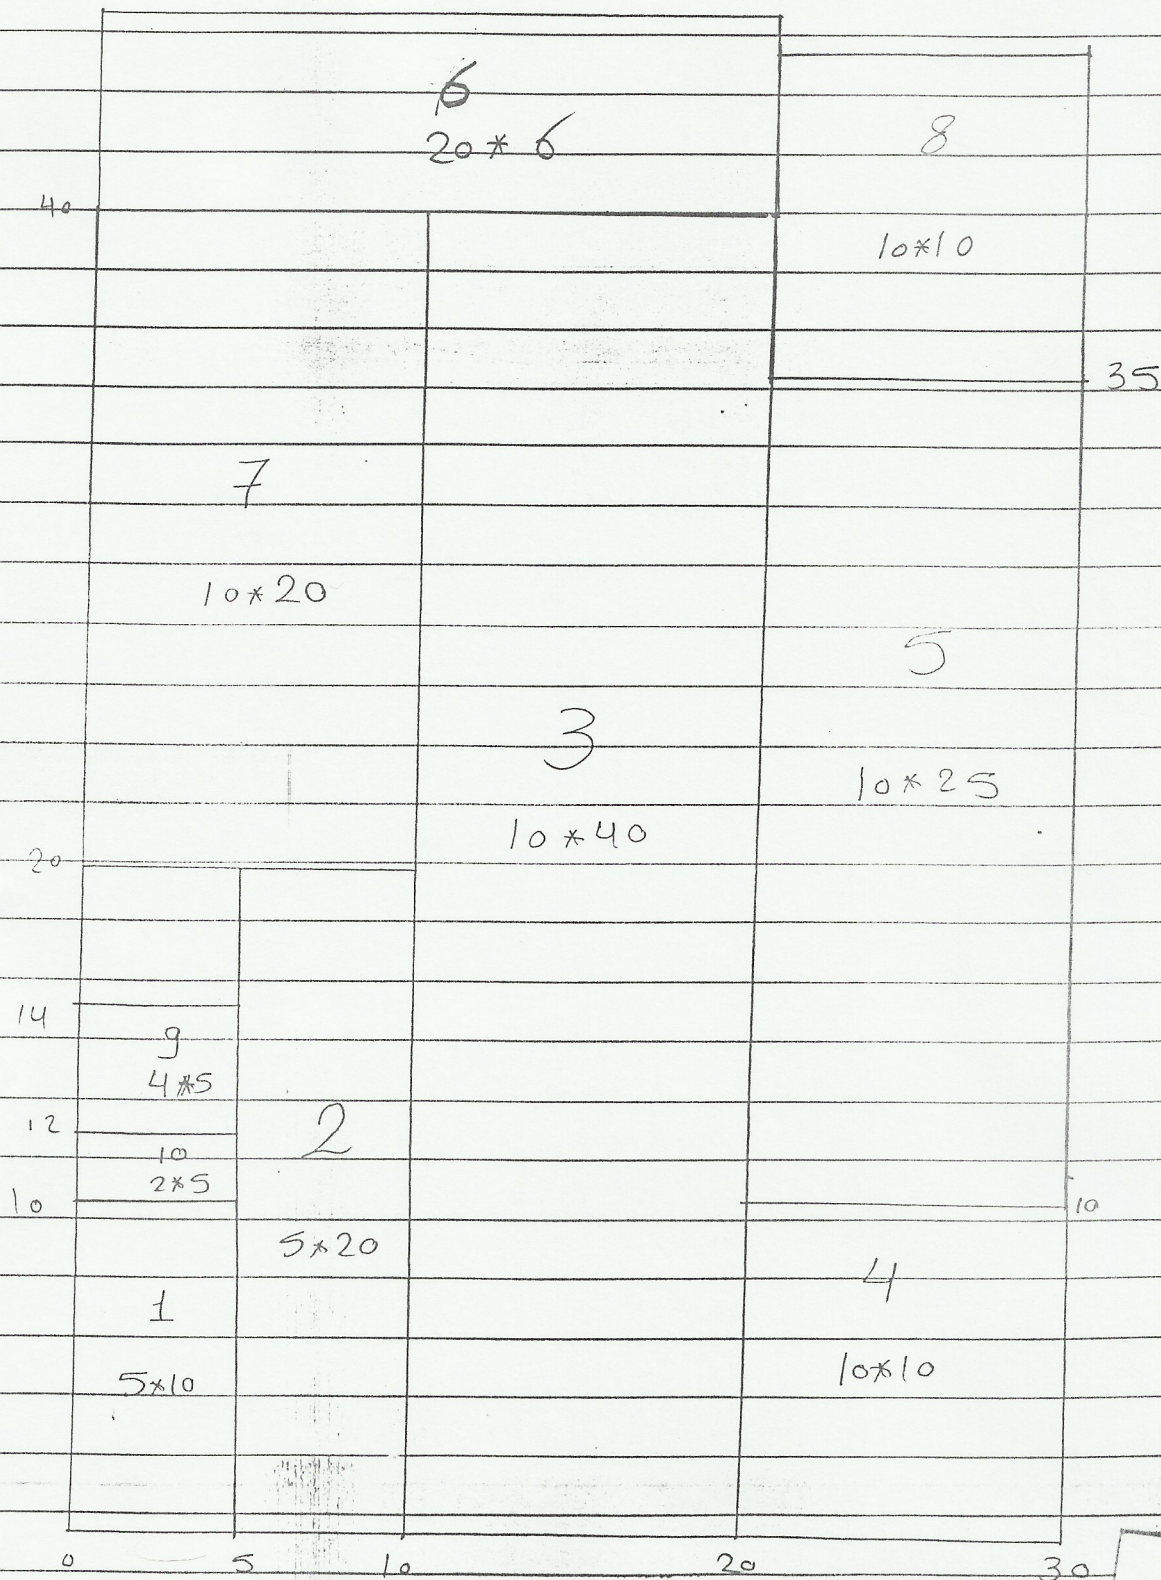 6
20 * 6
8
40
10*10
35
7
10*20
5
3
10*25
10*40
20
14
9
4*5
12
2
10
2*5
10
10
5*20
4
1
10*10
5*10
0 5 10 20 30